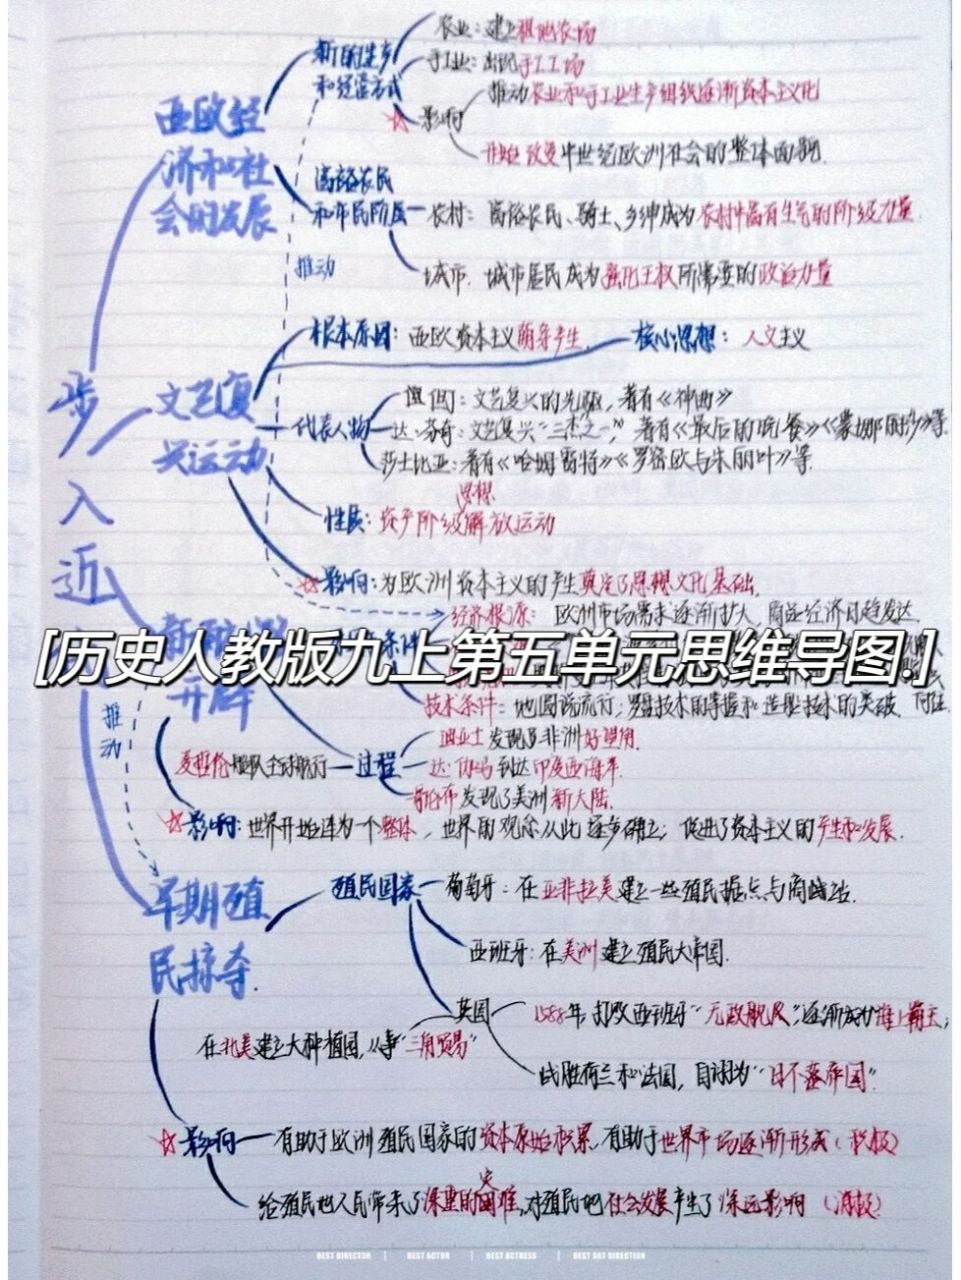 农业：建立租地农场
新的生产
和经营方式
手工业：出现手工工场
推动农业和手工业生产组织逐渐资本主义化
影响
开始改变中世纪欧洲社会的整体面貌.
西欧经
济和社
会的发展
富裕农民
和市民阶层
农村：富裕农民、骑士、乡绅成为农村中富有生气的阶级力量.
推动
城市：城市居民成为强化王权所需要的政治力量
根本原因：西欧资本主义萌芽产生.
核心思想：人文主义
步入近
文艺复
兴运动
代表人物
但丁：文艺复兴的先驱，著有《神曲》
达·芬奇：文艺复兴“三杰之一”，著有《最后的晚餐》《蒙娜丽莎》等.
莎士比亚：著有《哈姆雷特》《罗密欧与朱丽叶》等.
思想
性质：资产阶级解放运动
影响：为欧洲资本主义的产生奠定了思想文化基础.
经济根源：欧洲市场需求逐渐扩大，商品经济日趋发达.
[历史人教版九上第五单元思维导图.]
新航路
开辟
条件
技术条件：地圆说流行；罗盘技术的掌握和造船技术的突破.
推动
迪亚士发现了非洲好望角.
麦哲伦船队全球航行
过程
达·伽马到达印度西海岸.
哥伦布发现了美洲新大陆.
影响：世界开始连为一个整体，世界的观念从此逐步确立；促进了资本主义的产生和发展.
早期殖
民掠夺.
殖民国家
葡萄牙：在亚非拉美建立一些殖民据点与商站.
西班牙：在美洲建立殖民大帝国.
英国
1588年，打败西班牙“无敌舰队”，逐渐成为海上霸主；
在北美建立大种植园，从事“三角贸易”
战胜荷兰和法国，自诩为“日不落帝国”.
影响
有助于欧洲殖民国家的资本原始积累，有助于世界市场逐渐形成（积极）
给殖民地人民带来了深重的灾难，对殖民地社会发展产生了深远影响（消极）
BEST DIRECTOR | BEST ACTOR | BEST ACTRESS | BEST ART DIRECTION